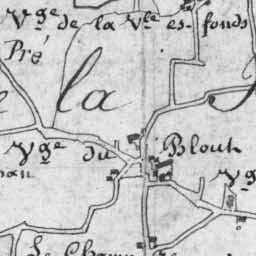 Vge de la Vle es-fonds
Pré
la
Vge du Blouk
Vg
Le Champ